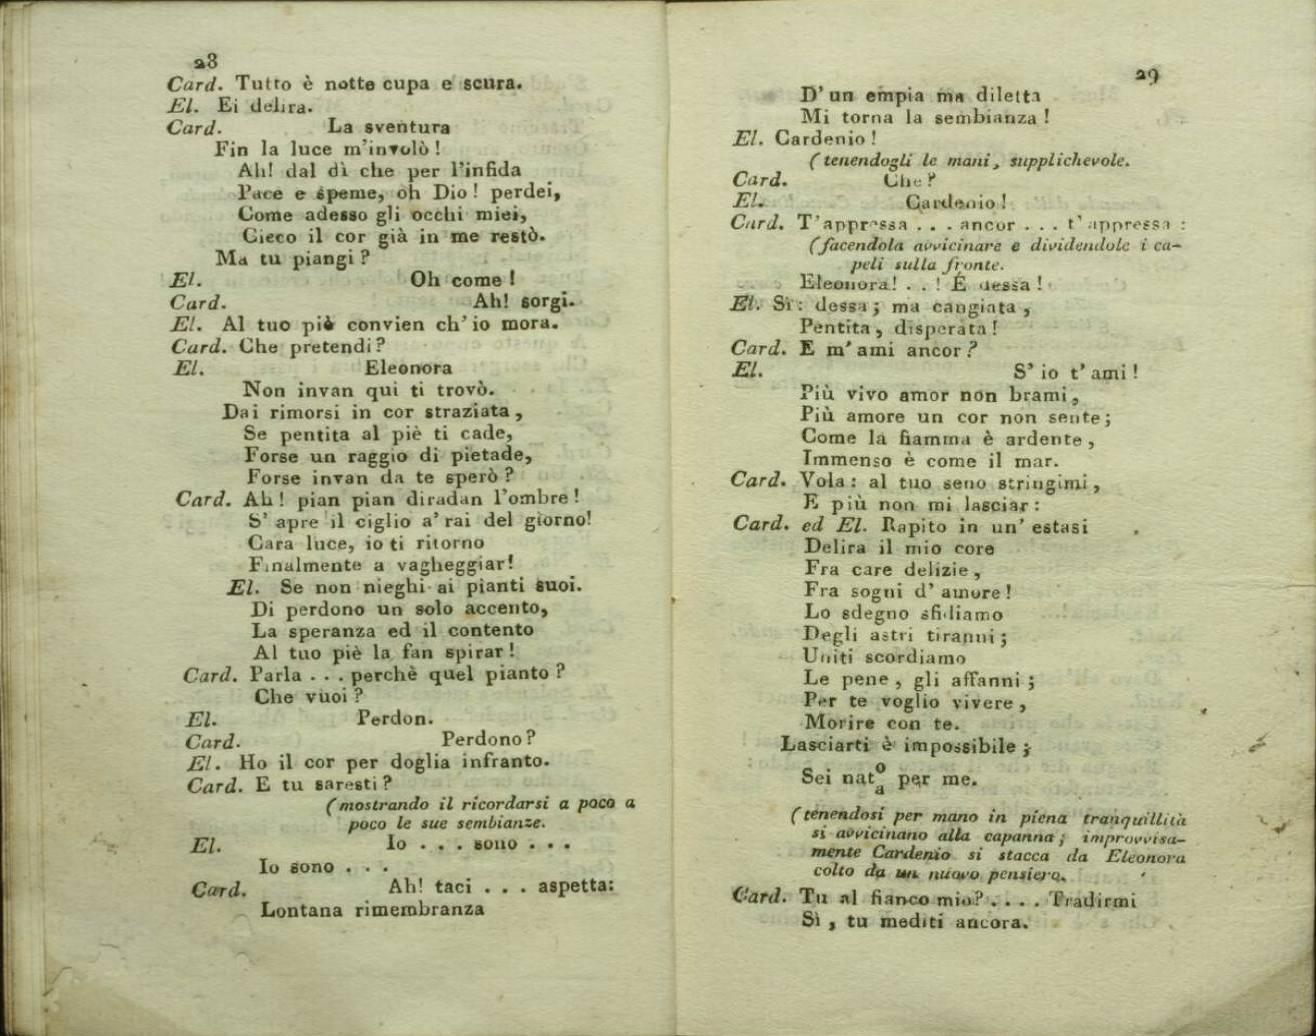 28
Card. Tutto è notte cupa e scura.
El. Ei delira.
Card. La sventura
Fin la luce m'involò!
Ah! dal dì che per l'infida
Pace e speme, oh Dio! perdei,
Come adesso gli occhi miei,
Cieco il cor già in me restò.
Ma tu piangi?
El. Oh come!
Card. Ah! sorgi.
El. Al tuo piè convien ch'io mora.
Card. Che pretendi?
El. Eleonora
Non invan qui ti trovò.
Dai rimorsi in cor straziata,
Se pentita al piè ti cade,
Forse un raggio di pietade,
Forse invan da te sperò?
Card. Ah! pian pian diradan l'ombre!
S'apre il ciglio a'rai del giorno!
Cara luce, io ti ritorno
Finalmente a vagheggiar!
El. Se non nieghi ai pianti suoi.
Di perdono un solo accento,
La speranza ed il contento
Al tuo piè la fan spirar!
Card. Parla . . . perchè quel pianto?
Che vuoi?
El. Perdon.
Card. Perdono?
El. Ho il cor per doglia infranto.
Card. E tu saresti?
(mostrando il ricordarsi a poco a
poco le sue sembianze.
El. Io . . . sono . . .
Io sono . . .
Card. Ah! taci . . . aspetta:
Lontana rimembranza
29
D'un empia ma diletta
Mi torna la sembianza!
El. Cardenio!
(tenendogli le mani, supplichevole.
Card. Che?
El. Cardenio!
Card. T'appressa . . . ancor . . . t'appressa:
(facendola avvicinare e dividendole i ca-
peli sulla fronte.
Eleonora! . . ! É dessa!
El. Sì: dessa; ma cangiata,
Pentita, disperata!
Card. E m'ami ancor?
El. S'io t'ami!
Più vivo amor non brami,
Più amore un cor non sente;
Come la fiamma è ardente,
Immenso è come il mar.
Card. Vola: al tuo seno stringimi,
E più non mi lasciar:
Card. ed El. Rapito in un'estasi
Delira il mio core
Fra care delizie,
Fra sogni d'amore!
Lo sdegno sfidiamo
Degli astri tiranni;
Uniti scordiamo
Le pene, gli affanni;
Per te voglio vivere,
Morire con te.
Lasciarti è impossibile;
Sei nat o/a per me.
(tenendosi per mano in piena tranquillità
si avvicinano alla capanna; improvvisa-
mente Cardenio si stacca da Eleonora
colto da un nuovo pensiero.
Card. Tu al fianco mio? . . . . Tradirmi
Sì, tu mediti ancora.